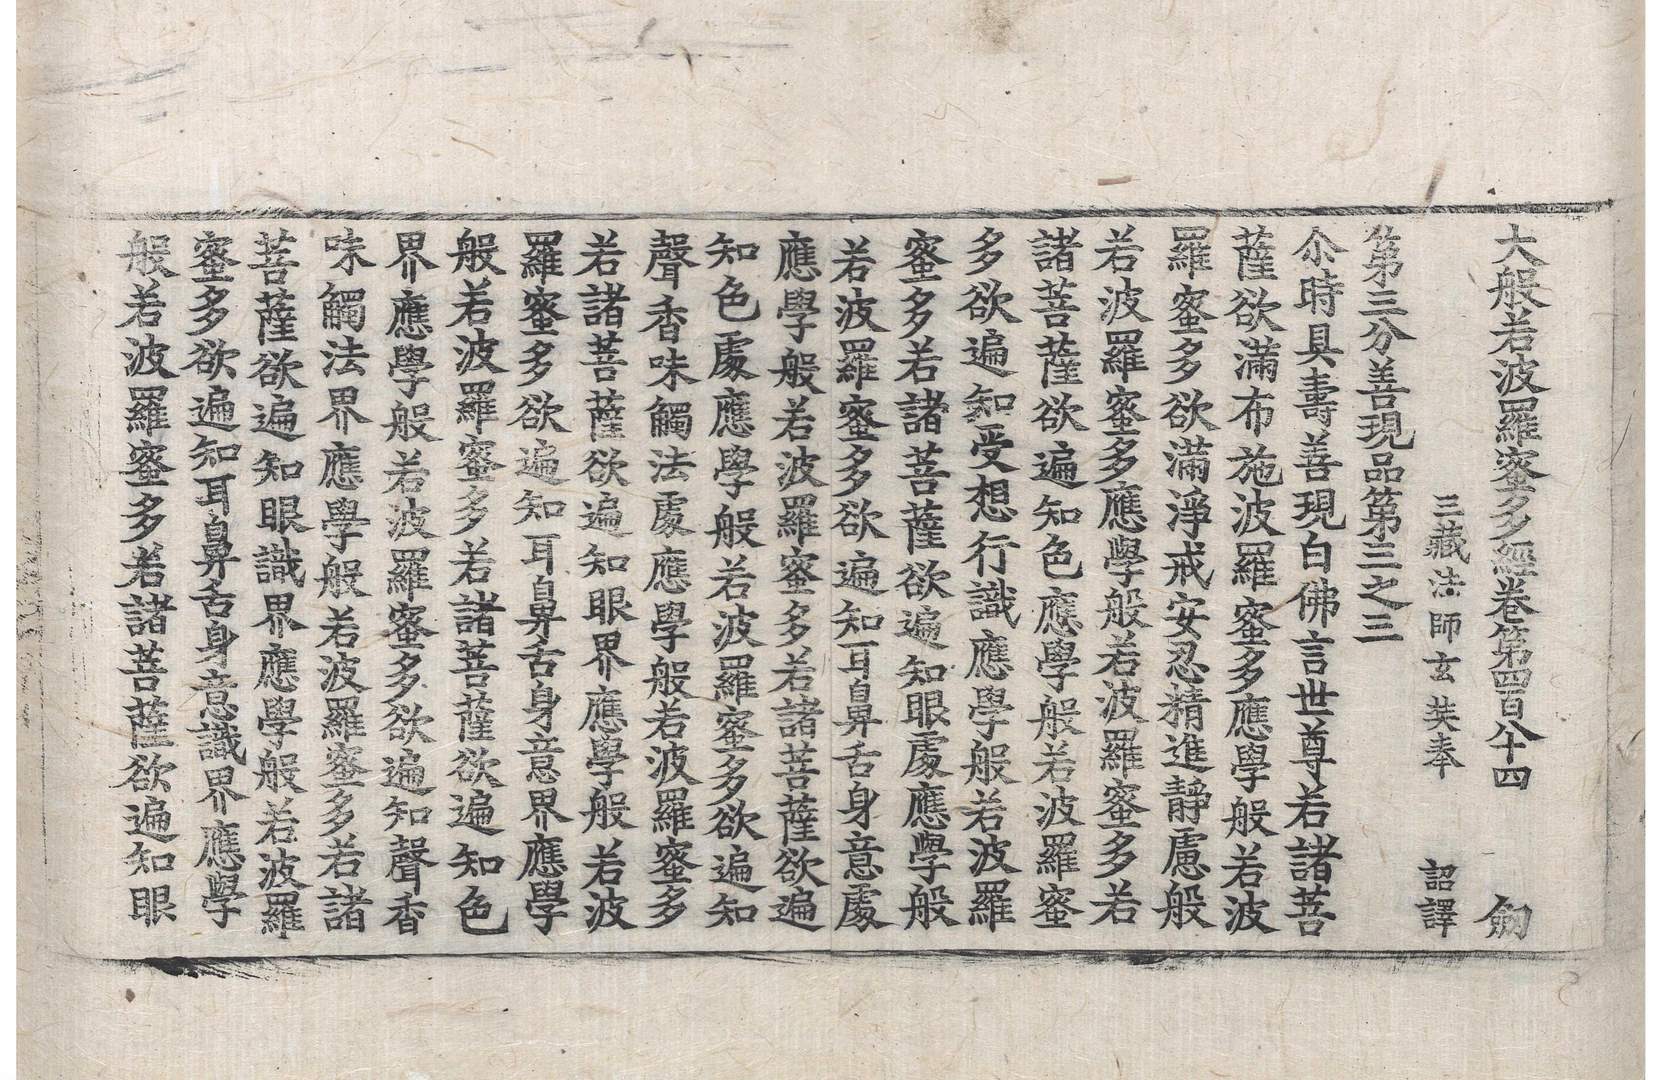 大般若波羅蜜多經卷第四百八十四 劒
三藏法師玄奘奉 詔譯
第三分善現品第三之三
尒時具壽善現白佛言世尊若諸菩
薩欲滿布施波羅蜜多應學般若波
羅蜜多欲滿淨戒安忍精進靜慮般
若波羅蜜多應學般若波羅蜜多若
諸菩薩欲遍知色應學般若波羅蜜
多欲遍知受想行識應學般若波羅
蜜多若諸菩薩欲遍知眼處應學般
若波羅蜜多欲遍知耳鼻舌身意處
應學般若波羅蜜多若諸菩薩欲遍
知色處應學般若波羅蜜多欲遍知
聲香味觸法處應學般若波羅蜜多
若諸菩薩欲遍知眼界應學般若波
羅蜜多欲遍知耳鼻舌身意界應學
般若波羅蜜多若諸菩薩欲遍知色
界應學般若波羅蜜多欲遍知聲香
味觸法界應學般若波羅蜜多若諸
菩薩欲遍知眼識界應學般若波羅
蜜多欲遍知耳鼻舌身意識界應學
般若波羅蜜多若諸菩薩欲遍知眼